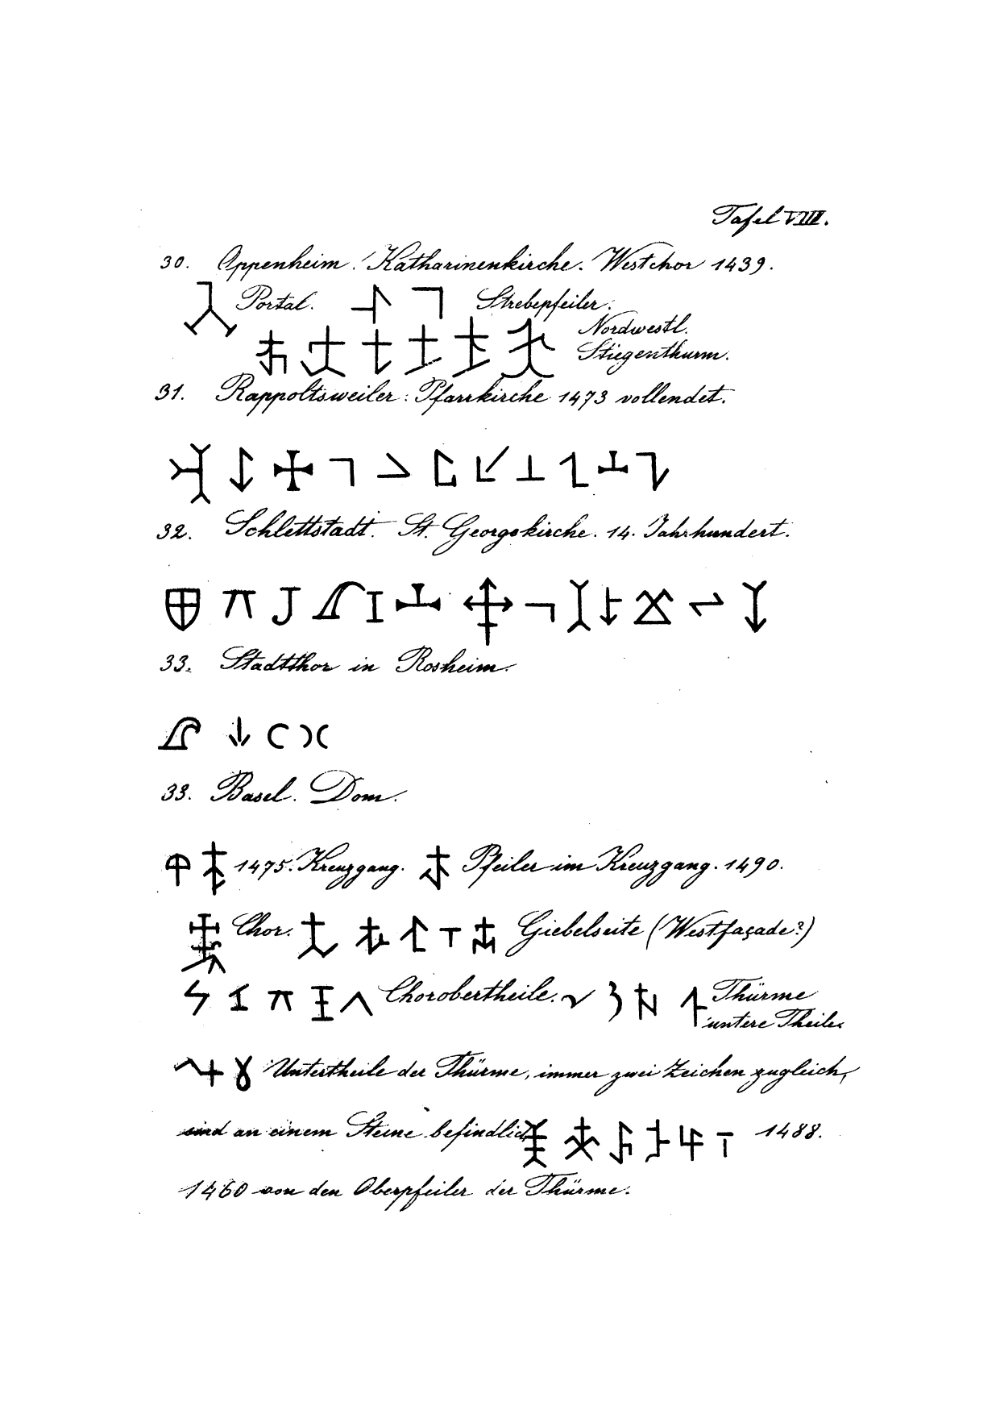 Tafel VIII.
30. Oppenheim. Katharinenkirche. Westchor 1439.
Portal. Strebepfeiler.
Nordwestl.
Stiegenthurm.
31. Rappoltsweiler: Pfarrkirche 1473 vollendet.
32. Schlettstadt. St. Georgskirche. 14. Jahrhundert.
33. Stadtthor in Rosheim.
33. Basel. Dom.
1475. Kreuzgang. Pfeiler im Kreuzgang. 1490.
Chor. Giebelseite (Westfaçade?)
Chorobertheile. Thürme
untere Theile
Untertheile der Thürme, immer zwei Zeichen zugleich,
sind an einem Steine befindlich 1488.
1460 von den Oberpfeiler der Thürme.